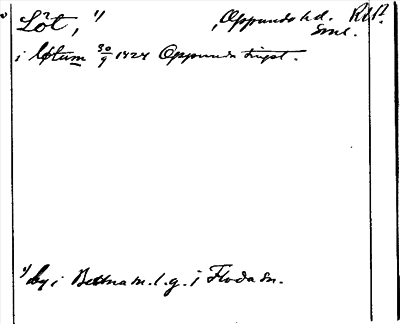 Löt, 1) Oppunda hd. RAP.
Sml.
i løtum 30/9 1424 Oppunda tingst.
1) by i Bettna sn. l. g. i Floda sn.